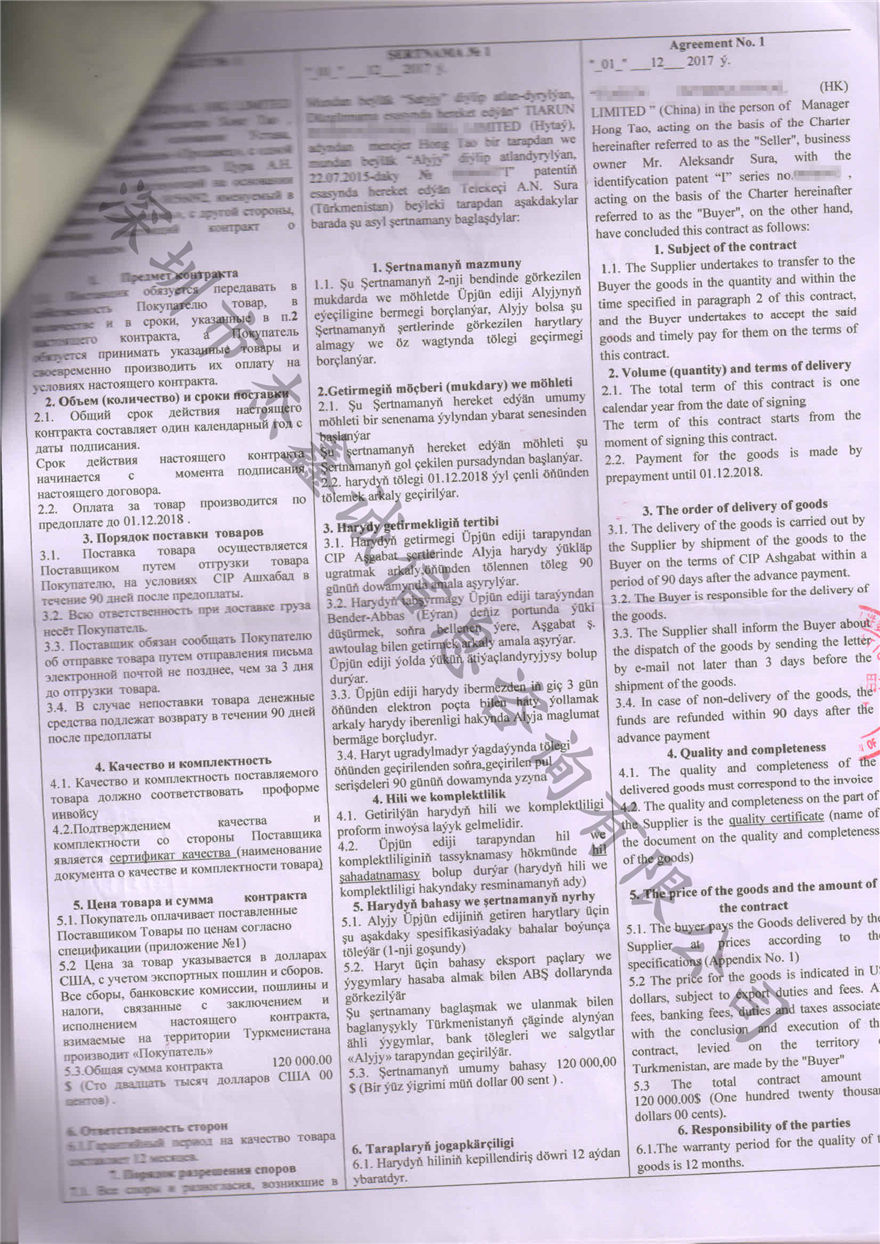 Предмет контракта
обязуется передавать в
Покупателю товар, в
и в сроки, указанные в п.2
контракта, а Покупатель
обязуется принимать указанные товары и
своевременно производить их оплату на
условиях настоящего контракта.
2. Объем (количество) и сроки поставки
2.1. Общий срок действия настоящего
контракта составляет один календарный год с
даты подписания.
Срок действия настоящего контракта
начинается с момента подписания
настоящего договора.
2.2. Оплата за товар производится по
предоплате до 01.12.2018 .
3. Порядок поставки товаров
3.1. Поставка товара осуществляется
Поставщиком путем отгрузки товара
Покупателю, на условиях CIP Ашхабад в
течение 90 дней после предоплаты.
3.2. Всю ответственность при доставке груза
несёт Покупатель.
3.3. Поставщик обязан сообщать Покупателю
об отправке товара путем отправления письма
электронной почтой не позднее, чем за 3 дня
до отгрузки товара.
3.4. В случае непоставки товара денежные
средства подлежат возврату в течении 90 дней
после предоплаты
4. Качество и комплектность
4.1. Качество и комплектность поставляемого
товара должно соответствовать проформе
инвойсу
4.2.Подтверждением качества и
комплектности со стороны Поставщика
является сертификат качества (наименование
документа о качестве и комплектности товара)
5. Цена товара и сумма контракта
5.1. Покупатель оплачивает поставленные
Поставщиком Товары по ценам согласно
спецификации (приложение №1)
5.2 Цена за товар указывается в долларах
США, с учетом экспортных пошлин и сборов.
Все сборы, банковские комиссии, пошлины и
налоги, связанные с заключением и
исполнением настоящего контракта,
взимаемые на территории Туркменистана
производит «Покупатель»
5.3.Общая сумма контракта 120 000.00
$ (Сто двадцать тысяч долларов США 00
центов) .
6. Ответственность сторон
6.1.Гарантийный период на качество товара
составляет 12 месяцев.
7. Порядок разрешения споров
7.1. Все споры и разногласия, возникшие в
ŞERTNAMA № 1
"_01_" ___12___ 2017 ý.
Mundan beýläk "Satyjy" diýlip atlan-dyrylýan,
Düzgünnama esasynda hereket edýän" TIARUN
LIMITED (Hytaý),
adyndan menejer Hong Tao bir tarapdan we
mundan beýläk "Alyjy" diýlip atlandyrylýan,
22.07.2015-daky № I" patentiň
esasynda hereket edýän Telekeçi A.N. Sura
(Türkmenistan) beýleki tarapdan aşakdakylar
barada şu asyl şertnamany baglaşdylar:
1. Şertnamanyň mazmuny
1.1. Şu Şertnamanyň 2-nji bendinde görkezilen
mukdarda we möhletde Üpjün ediji Alyjynyň
eýeçiligine bermegi borçlanýar, Alyjy bolsa şu
Şertnamanyň şertlerinde görkezilen harytlary
almagy we öz wagtynda tölegi geçirmegi
borçlanýar.
2.Getirmegiň möçberi (mukdary) we möhleti
2.1. Şu Şertnamanyň hereket edýän umumy
möhleti bir senenama ýylyndan ybarat senesinden
başlanýar
Şu şertnamanyň hereket edýän möhleti şu
Şertnamanyň gol çekilen pursadyndan başlanýar.
2.2. harydyň tölegi 01.12.2018 ýyl çenli öňünden
tölemek arkaly geçirilýar.
3. Harydy getirmekligiň tertibi
3.1. Harydyň getirmegi Üpjün ediji tarapyndan
CIP Aşgabat şertlerinde Alyja harydy ýükläp
ugratmak arkaly,öňünden tölennen töleg 90
günüň dowamynda amala aşyrylýar.
3.2. Harydyň tabşyrmagy Üpjün ediji taraýyndan
Bender-Abbas (Eýran) deňiz portunda ýüki
düşürmek, soňra bellenen ýere, Aşgabat ş.
awtoulag bilen getirmek arkaly amala aşyrýar.
Üpjün ediji ýolda ýüküň ätiýaçlandyryjysy bolup
durýar.
3.3. Üpjün ediji harydy ibermezden iň giç 3 gün
öňünden elektron poçta bilen haty ýollamak
arkaly harydy iberenligi hakynda Alyja maglumat
bermäge borçludyr.
3.4. Haryt ugradylmadyr ýagdaýynda tölegi
öňünden geçirilenden soňra,geçirilen pul
serişdeleri 90 günüň dowamynda yzyna
4. Hili we komplektlilik
4.1. Getirilýän harydyň hili we komplektliligi
proform inwoýsa laýyk gelmelidir.
4.2. Üpjün ediji tarapyndan hil we
komplektliliginiň tassyknamasy hökmünde hil
şahadatnamasy bolup durýar (harydyň hili we
komplektliligi hakyndaky resminamanyň ady)
5. Harydyň bahasy we şertnamanyň nyrhy
5.1. Alyjy Üpjün edijiniň getiren harytlary üçin
şu aşakdaky spesifikasiýadaky bahalar boýunça
töleýär (1-nji goşundy)
5.2. Haryt üçin bahasy eksport paçlary we
ýygymlary hasaba almak bilen ABŞ dollarynda
görkezilýär
Şu şertnamany baglaşmak we ulanmak bilen
baglanyşykly Türkmenistanyň çäginde alynýan
ähli ýygymlar, bank tölegleri we salgytlar
«Alyjy» tarapyndan geçirilýär.
5.3. Şertnamanyň umumy bahasy 120 000,00
$ (Bir ýüz ýigrimi müň dollar 00 sent ) .
6. Taraplaryň jogapkärçiligi
6.1. Harydyň hiliniň kepillendiriş döwri 12 aýdan
ybaratdyr.
Agreement No. 1
"_01_" ___12___ 2017 ý.
(HK)
LIMITED " (China) in the person of Manager
Hong Tao, acting on the basis of the Charter
hereinafter referred to as the "Seller", business
owner Mr. Aleksandr Sura, with the
identifycation patent “I” series no. ,
acting on the basis of the Charter hereinafter
referred to as the "Buyer", on the other hand,
have concluded this contract as follows:
1. Subject of the contract
1.1. The Supplier undertakes to transfer to the
Buyer the goods in the quantity and within the
time specified in paragraph 2 of this contract,
and the Buyer undertakes to accept the said
goods and timely pay for them on the terms of
this contract.
2. Volume (quantity) and terms of delivery
2.1. The total term of this contract is one
calendar year from the date of signing
The term of this contract starts from the
moment of signing this contract.
2.2. Payment for the goods is made by
prepayment until 01.12.2018.
3. The order of delivery of goods
3.1. The delivery of the goods is carried out by
the Supplier by shipment of the goods to the
Buyer on the terms of CIP Ashgabat within a
period of 90 days after the advance payment.
3.2. The Buyer is responsible for the delivery of
the goods.
3.3. The Supplier shall inform the Buyer about
the dispatch of the goods by sending the letter
by e-mail not later than 3 days before the
shipment of the goods.
3.4. In case of non-delivery of the goods, the
funds are refunded within 90 days after the
advance payment
4. Quality and completeness
4.1. The quality and completeness of the
delivered goods must correspond to the invoice
4.2. The quality and completeness on the part of
the Supplier is the quality certificate (name of
the document on the quality and completeness
of the goods)
5. The price of the goods and the amount of
the contract
5.1. The buyer pays the Goods delivered by the
Supplier at prices according to the
specifications (Appendix No. 1)
5.2 The price for the goods is indicated in US
dollars, subject to export duties and fees. A
fees, banking fees, duties and taxes associate
with the conclusion and execution of th
contract, levied on the territory
Turkmenistan, are made by the "Buyer"
5.3 The total contract amount
120 000.00$ (One hundred twenty thousan
dollars 00 cents).
6. Responsibility of the parties
6.1.The warranty period for the quality of t
goods is 12 months.
深圳市杰鑫诚信息咨询有限公司